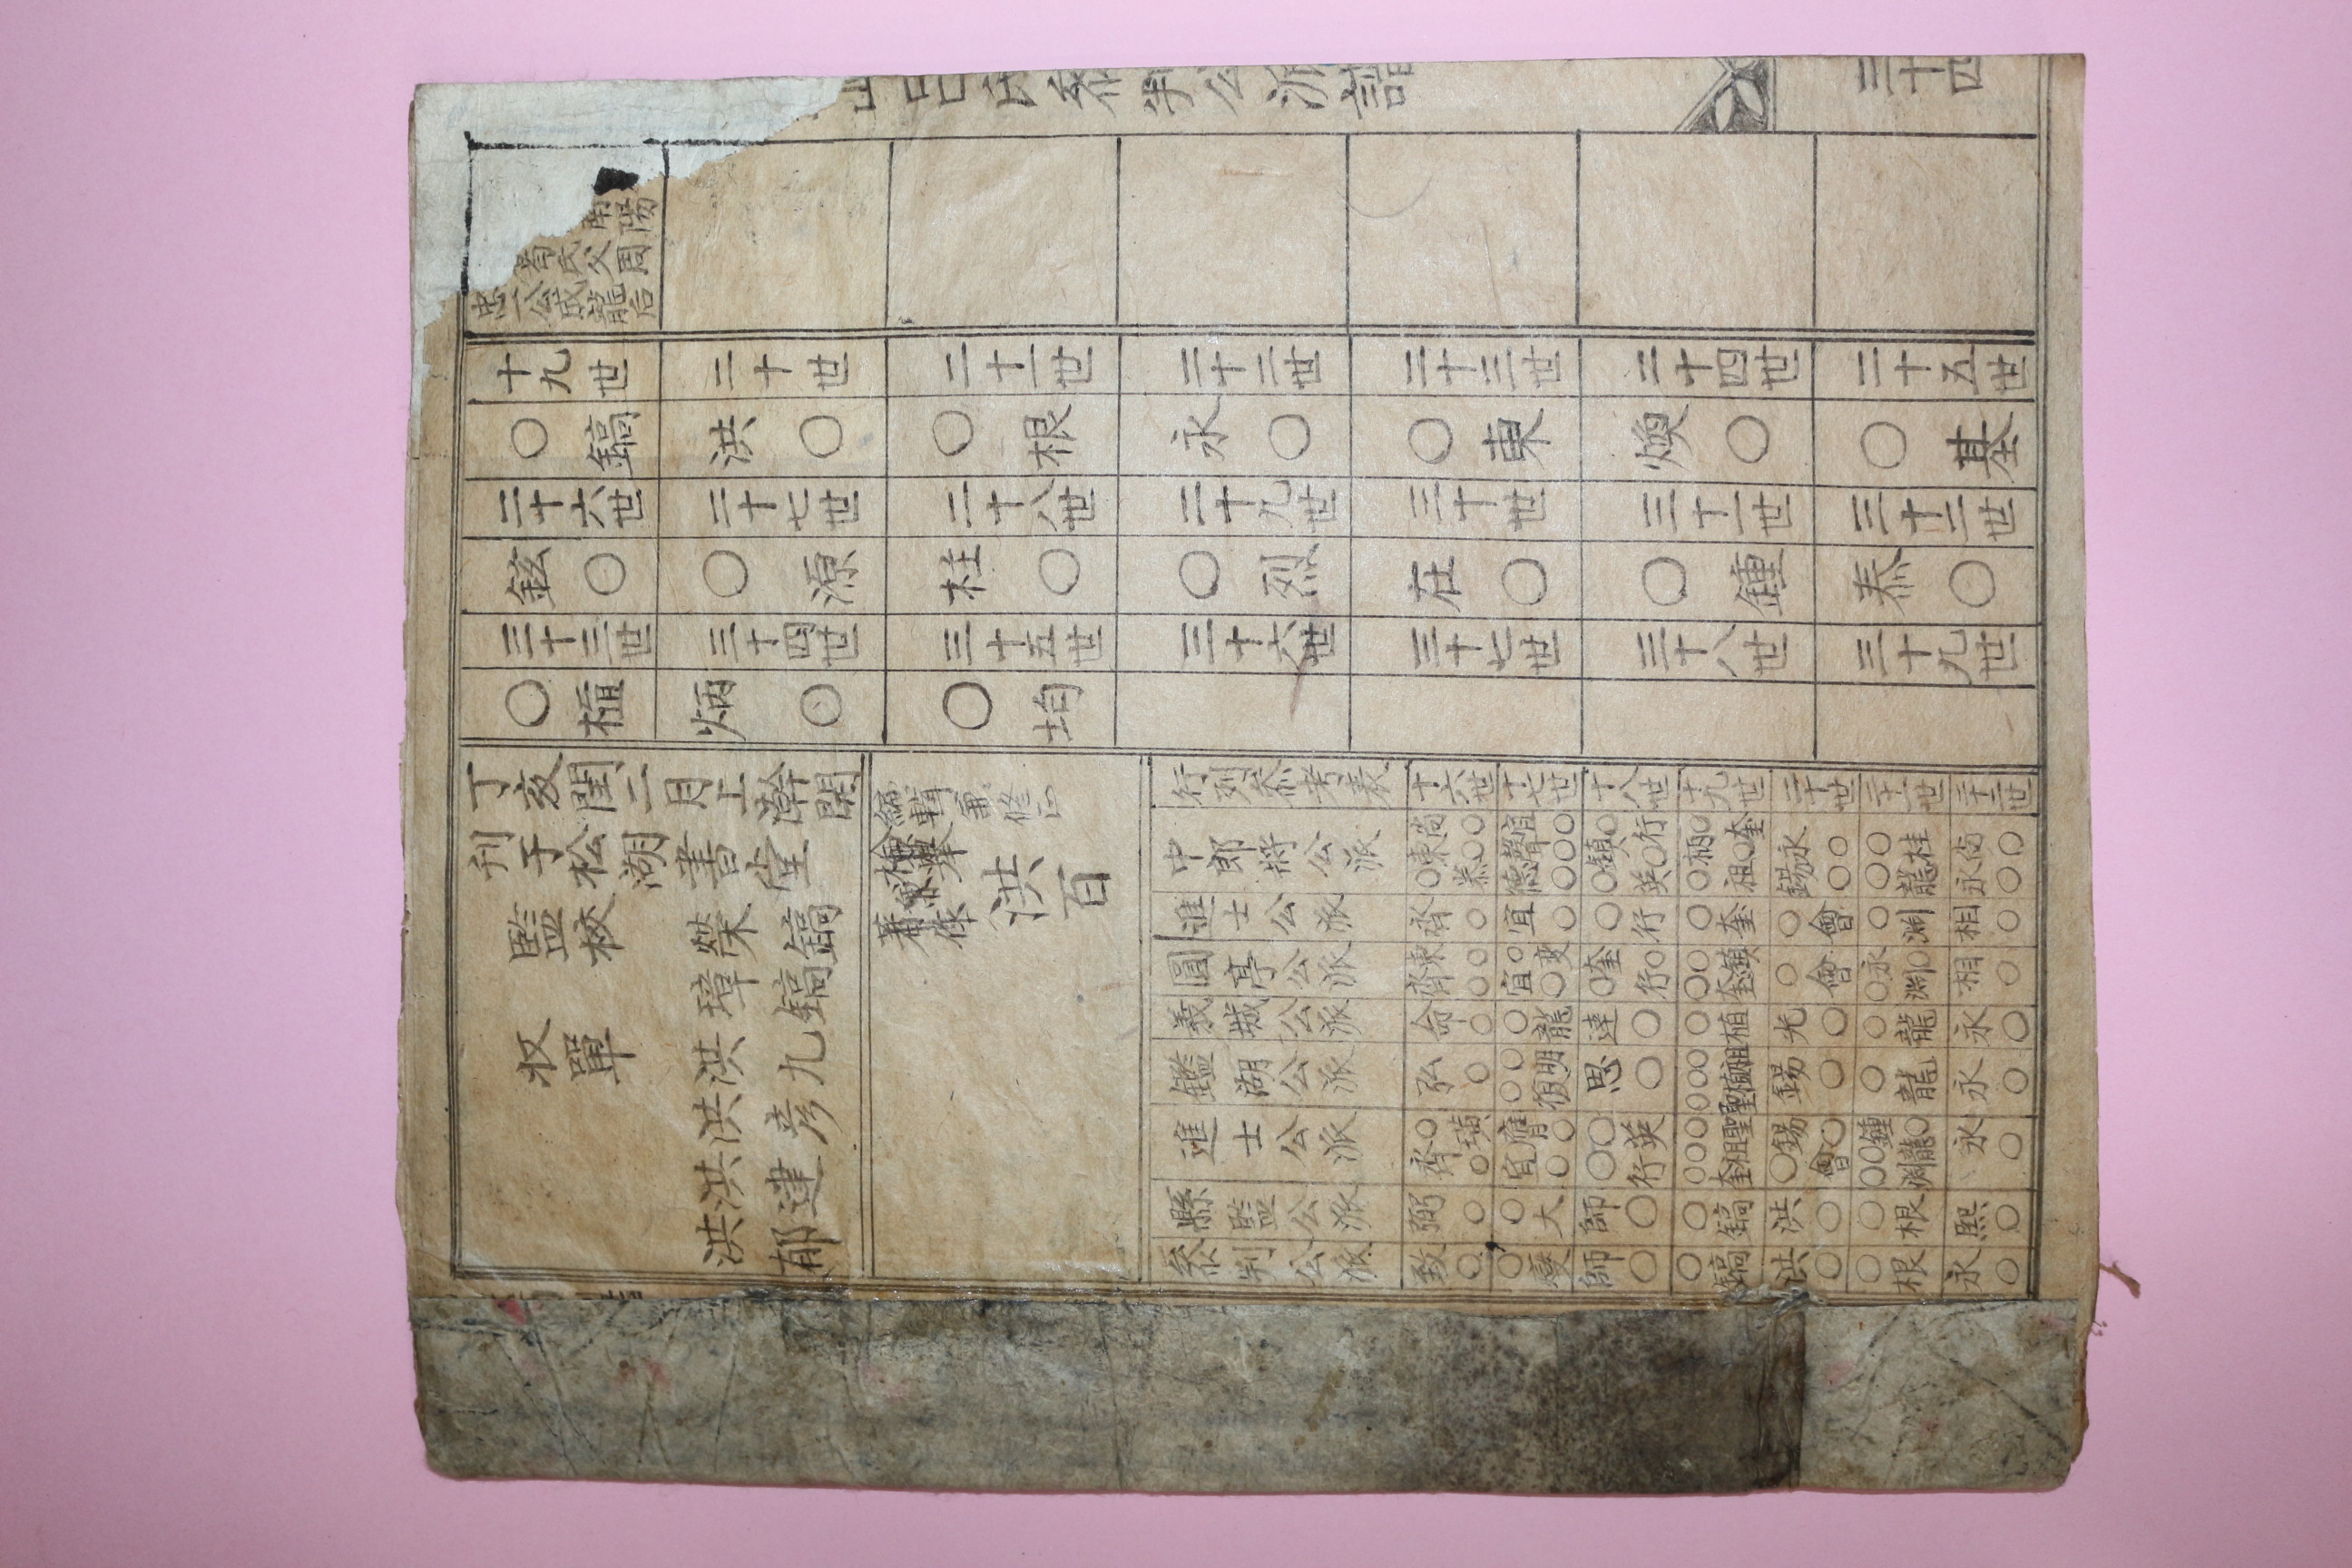 呂氏參判公派譜
三十四
南陽
氏父周
忠公成龍后
十九世 二十世 二十一世 二十二世 二十三世 二十四世 二十五世
○鎬 洪○ ○根 永○ ○東 煥○ ○基
二十六世 二十七世 二十八世 二十九世 三十世 三十一世 三十二世
鉉○ ○源 柱○ ○烈 在○ ○鍾 泰○
三十三世 三十四世 三十五世 三十六世 三十七世 三十八世 三十九世
○植 炳○ ○均
丁亥閏二月上澣開
刊于松湖書堂
監校 榮鎬
璋鎬
收單 洪九
洪彦
洪建
洪郁
編輯兼修正
檢舉
兼
著作
洪百
行列參考表 十六世 十七世 十八世 十九世 二十世 二十一世 二十二世
中郎將公派 尚○ 東○ ○烝 宜○ 聲○ 德○ ○行 鎮○ ○英 ○奎 柄○ ○祖 永○ 錫○ ○桂 ○龍 尚○ 永○
進士公派 齊○ 宜○ ○行 ○奎 ○會 ○淵 相○
圓亭公派 東○ 齊○ ○変 宜○ 奎○ ○行 ○鎮 ○奎 ○會 永○ ○淵 相○
義城公派 命○ ○龍 達○ ○植 光○ ○龍 永○
鑑湖公派 弘○ ○明 ○復 思○ ○祖 ○植 ○聖 錫○ ○龍 永○
進士公派 ○璜 齊○ 膺○ 宜○ ○英 ○行 ○聖 ○祖 ○奎 錫○ ○會 鍾○ ○龍 ○淵 永○
縣監公派 弼○ ○大 師○ ○鎬 洪○ ○根 熙○
參判公派 致○ ○燮 師○ ○鎬 洪○ ○根 永○